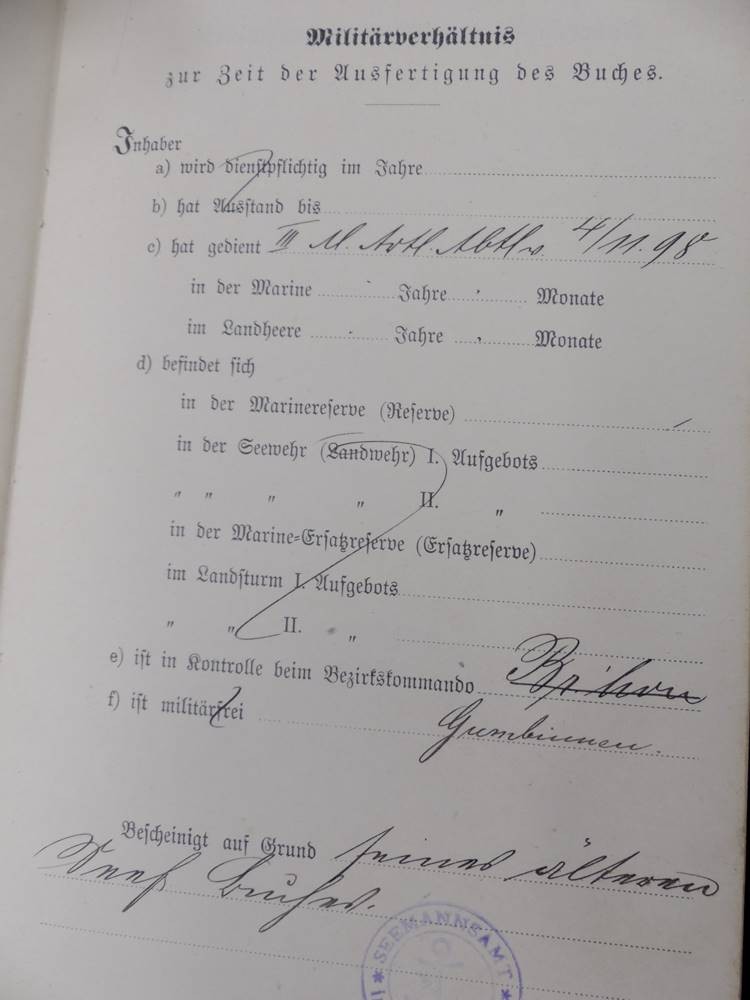 Militärverhältnis
zur Zeit der Ausfertigung des Buches.
Inhaber
a) wird dienstpflichtig im Jahre
b) hat Ausstand bis
c) hat gedient III M. Artl. Abtl. v. 4/11.98
in der Marine " Jahre " Monate
im Landheere " Jahre " Monate
d) befindet sich
in der Marinereserve (Reserve)
in der Seewehr (Landwehr) I. Aufgebots
" " " " II. "
in der Marine-Ersatzreserve (Ersatzreserve)
im Landsturm I. Aufgebots
" " II. "
e) ist in Kontrolle beim Bezirkskommando
f) ist militärfrei Gumbinnen.
Bescheinigt auf Grund seines älteren
Seef. Buches.
SEEMANNSAMT